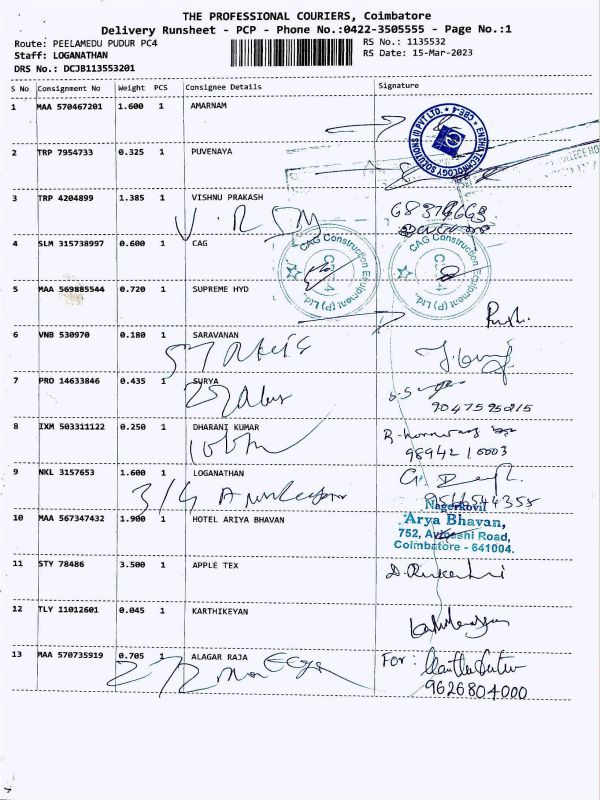 THE PROFESSIONAL COURIERS, Coimbatore
Delivery Runsheet - PCP - Phone No.:0422-3505555 - Page No.:1
Route: PEELAMEDU PUDUR PC4
RS No.: 1135532
Staff: LOGANATHAN
RS Date: 15-Mar-2023
DRS No.: DCJB113553201
S No Consignment No Weight PCS Consignee Details Signature
1 MAA 570467201 1.600 1 AMARNAM
2 TRP 7954733 0.325 1 PUVENAYA
3 TRP 4204899 1.385 1 VISHNU PRAKASH
4 SLM 315738997 0.600 1 CAG
CAG Construction Equipment (P) Ltd.
CAG Construction Equipment (P) Ltd.
5 MAA 569885544 0.720 1 SUPREME HYD
6 VNB 530970 0.180 1 SARAVANAN
7 PRO 14633846 0.435 1 SURYA
8 IXM 503311122 0.250 1 DHARANI KUMAR
9 NKL 3157653 1.600 1 LOGANATHAN
3/4
Nagerkovil
10 MAA 567347432 1.900 1 HOTEL ARIYA BHAVAN
Arya Bhavan,
752, Avinashi Road,
Coimbatore - 641004.
11 STY 78486 3.500 1 APPLE TEX
12 TLY 11012601 0.045 1 KARTHIKEYAN
13 MAA 570735919 0.705 1 ALAGAR RAJA
For:
9626804000